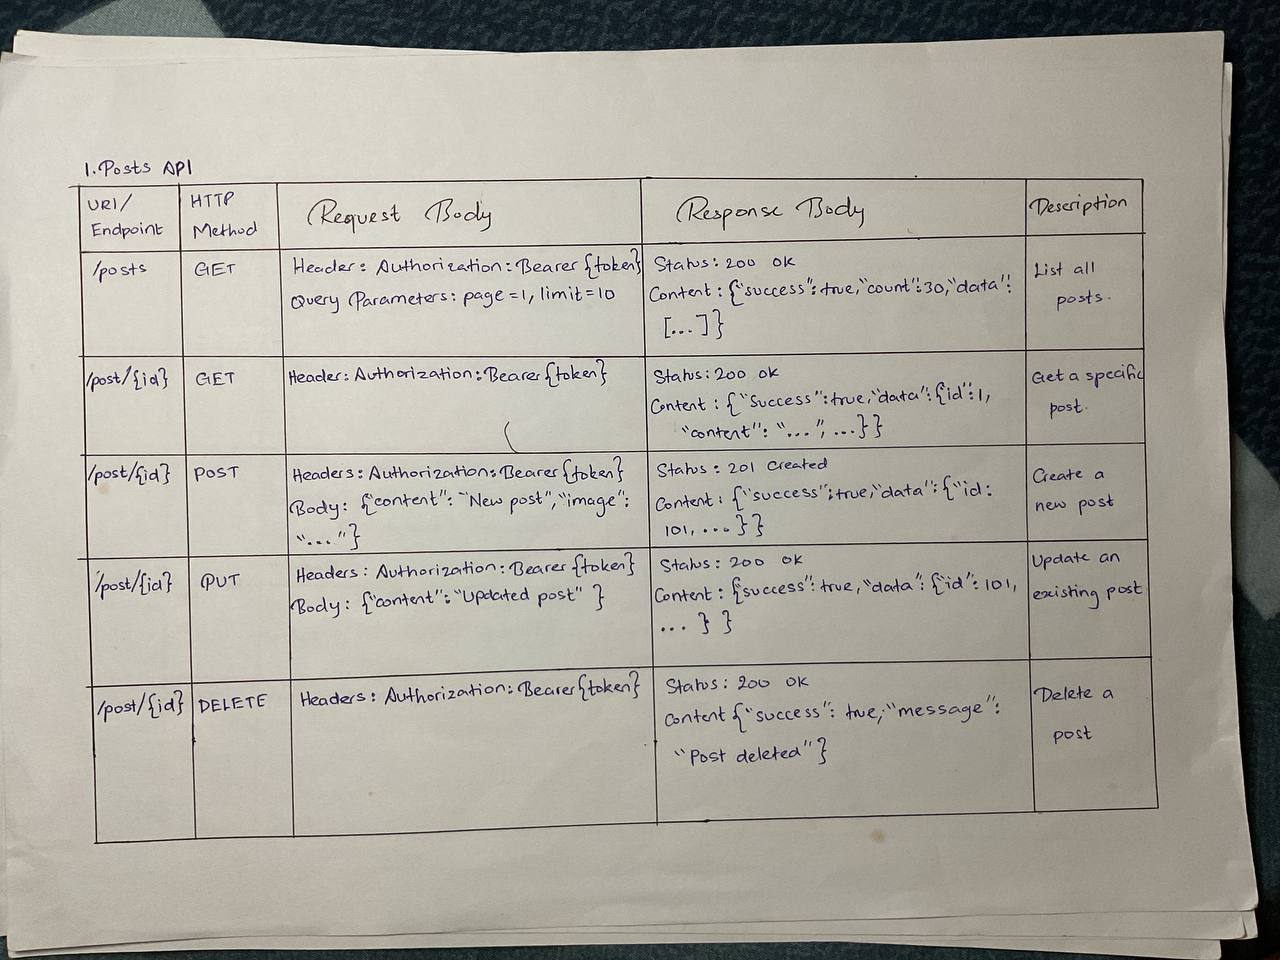 1. Posts API
URI/
Endpoint
HTTP
Method
Request Body
Response Body
Description
/posts
GET
Header: Authorization: Bearer {token}
Query Parameters: page=1, limit=10
Status: 200 OK
Content: {"success": true, "count": 30, "data":
[...]}
List all
posts.
/post/{id}
GET
Header: Authorization: Bearer {token}
Status: 200 OK
Content: {"Success": true, "data": {id": 1,
"content": "...", ...}}
Get a specific
post.
/post/{id}
POST
Headers: Authorization: Bearer {token}
Body: {"content": "New post", "image":
"..."}
Status: 201 Created
Content: {"success": true, "data": {"id:
101, ... }}
Create a
new post
/post/{id}
PUT
Headers: Authorization: Bearer {token}
Body: {"content": "Updated post" }
Status: 200 OK
Content: {success": true, "data": {"id": 101,
... } }
Update an
existing post
/post/{id}
DELETE
Headers: Authorization: Bearer {token}
Status: 200 OK
Content {"success": true, "message":
"Post deleted"}
Delete a
post